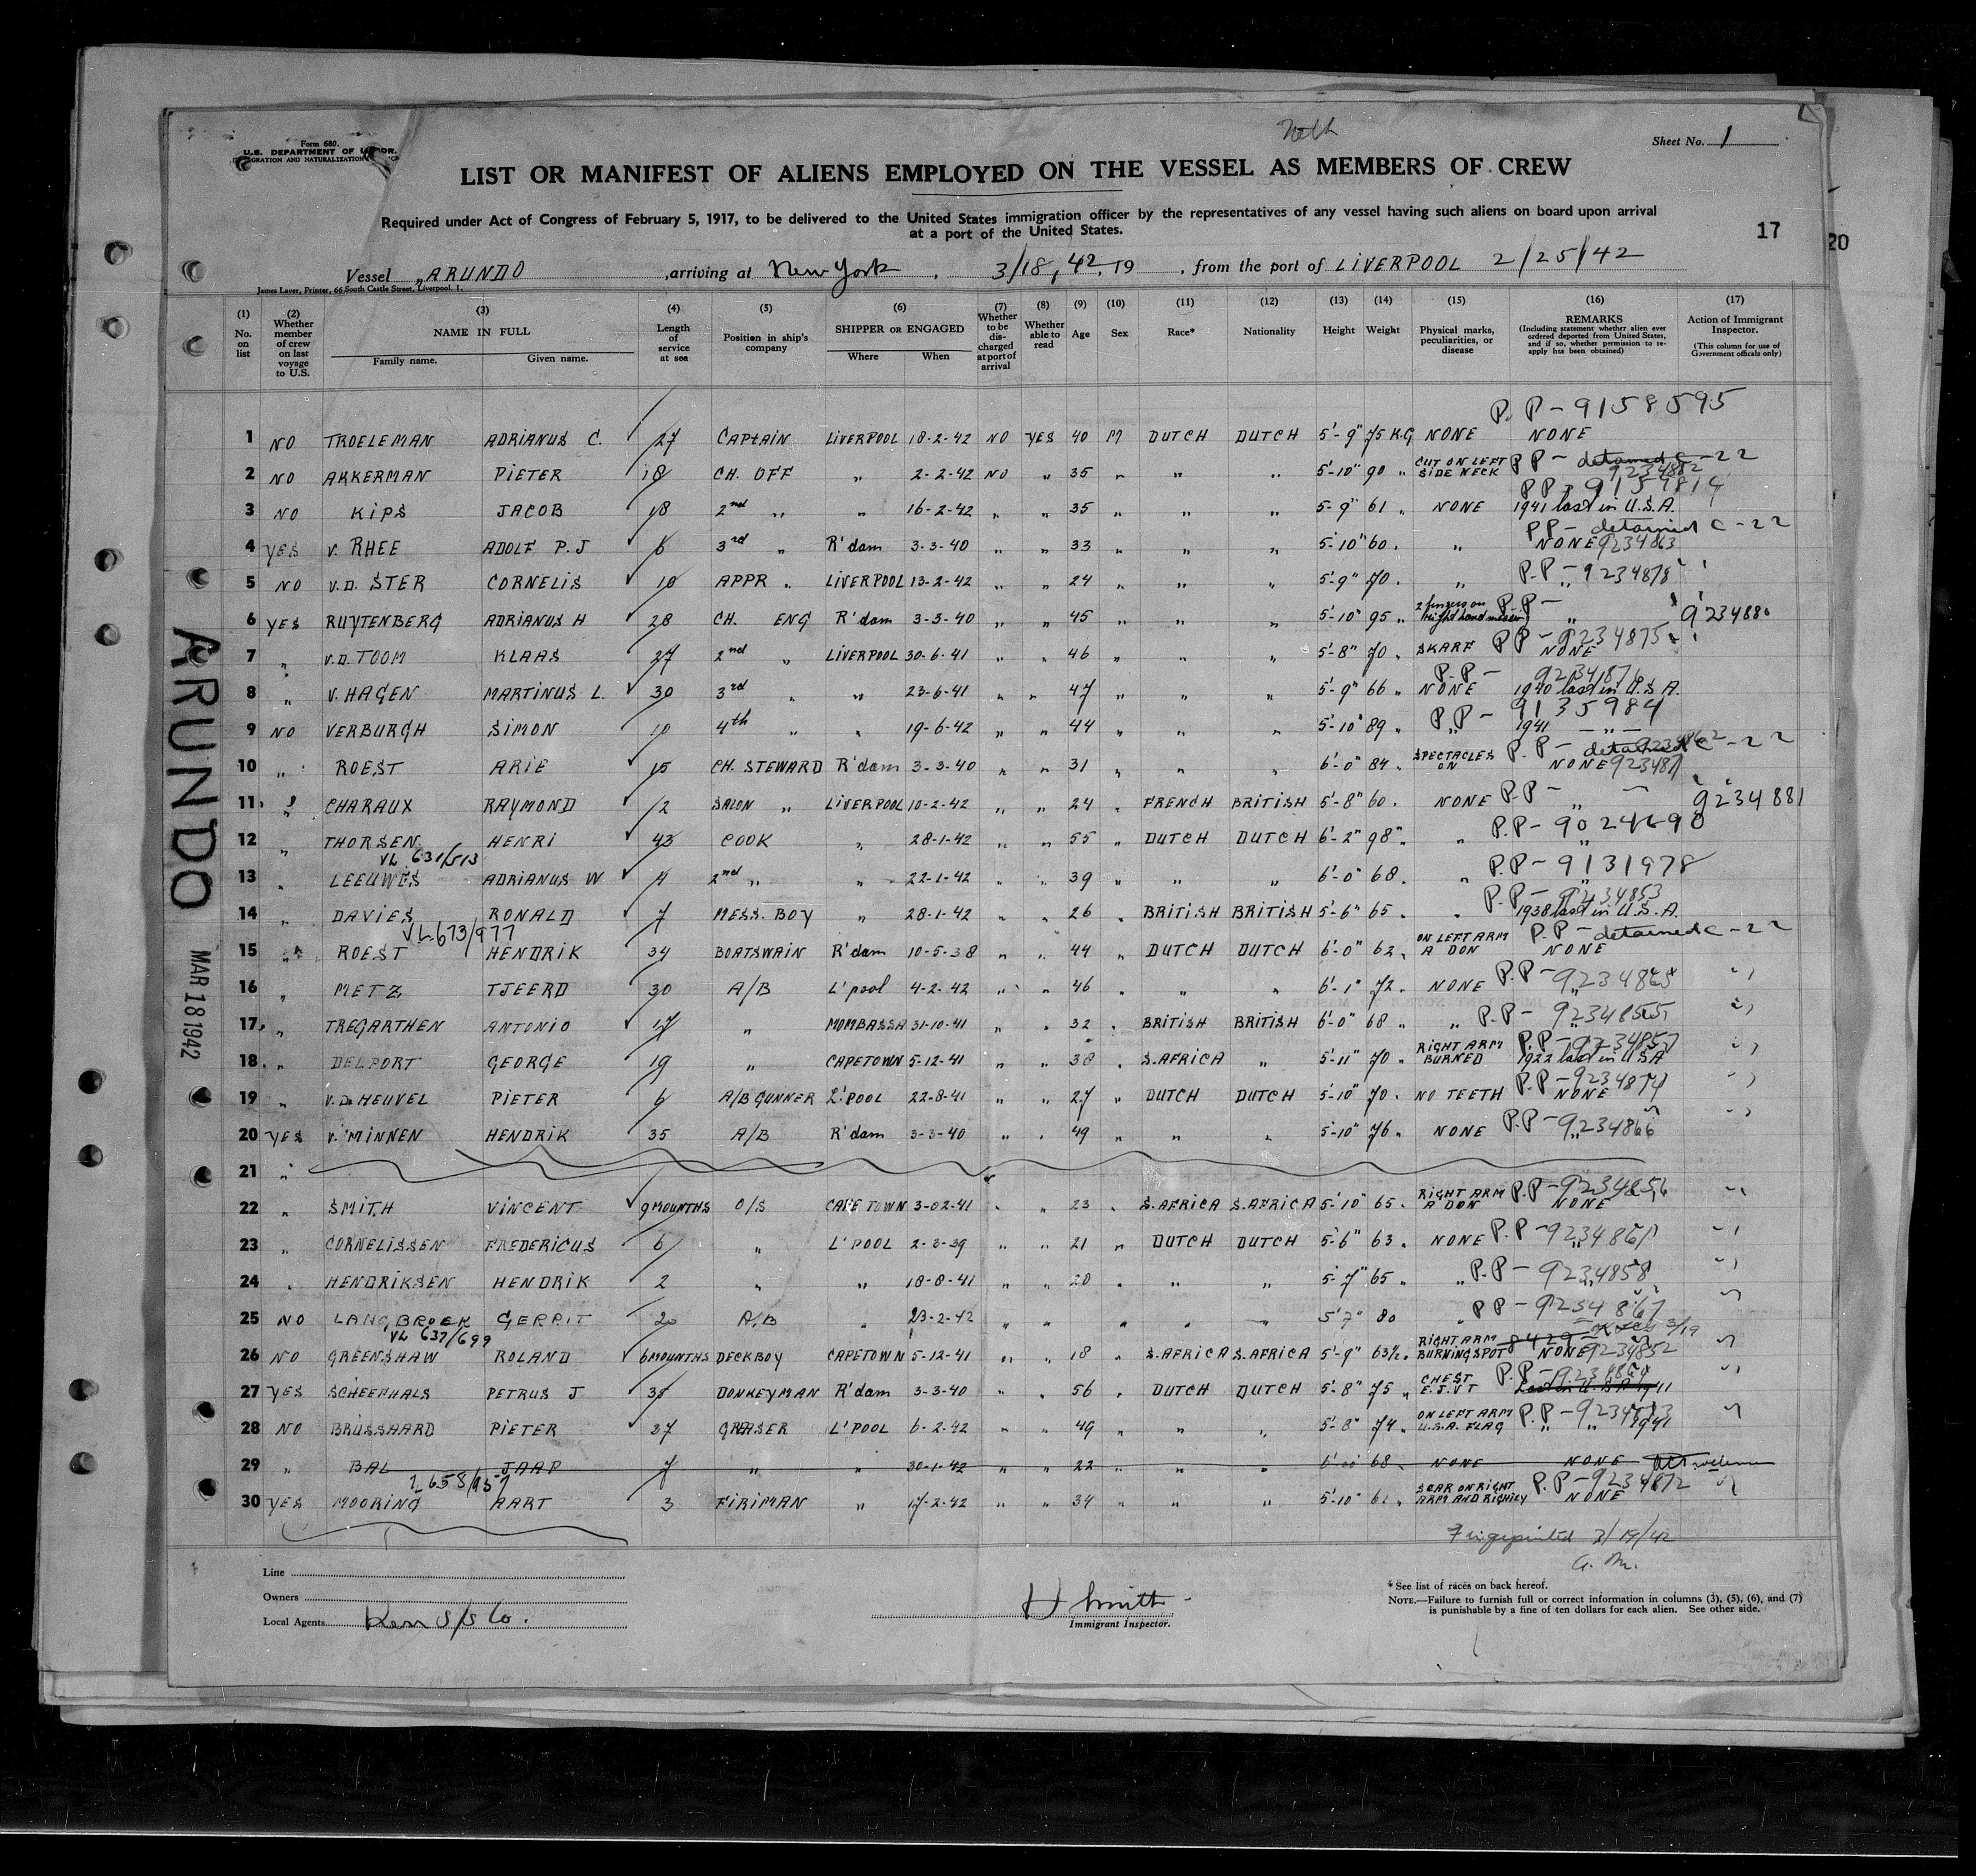 Neth
Form 680.
U.S. DEPARTMENT OF LABOR.
IMMIGRATION AND NATURALIZATION
Sheet No. 1
LIST OR MANIFEST OF ALIENS EMPLOYED ON THE VESSEL AS MEMBERS OF CREW
Required under Act of Congress of February 5, 1917, to be delivered to the United States immigration officer by the representatives of any vessel having such aliens on board upon arrival
at a port of the United States.
17
20
Vessel „ARUNDO , arriving at New York , 3/18, 42, 19 , from the port of LIVERPOOL 2/25/42
James Laver, Printer, 66 South Castle Street, Liverpool. 1.
(1) No. on list
(2) Whether member of crew on last voyage to U.S.
(3) NAME IN FULL
Family name. Given name.
(4) Length of service at sea
(5) Position in ship's company
(6) SHIPPER OR ENGAGED
Where When
(7) Whether to be discharged at port of arrival
(8) Whether able to read
(9) Age
(10) Sex
(11) Race*
(12) Nationality
(13) Height
(14) Weight
(15) Physical marks, peculiarities, or disease
(16) REMARKS
(Including statement whether alien ever ordered deported from United States, and if so, whether permission to re-apply has been obtained)
(17) Action of Immigrant Inspector.
(This column for use of Government officals only)
P.P - 9158595
1 NO TROELEMAN ADRIANUS C. 27 CAPTAIN LIVERPOOL 18-2-42 NO YES 40 M DUTCH DUTCH 5'-9" 75 K.G NONE NONE
2 NO AKKERMAN PIETER 18 CH. OFF „ 2-2-42 NO „ 35 „ „ „ 5'-10" 90 „ CUT ON LEFT SIDE NECK P P - detained C-22 9234882
3 NO KIPS JACOB 18 2nd „ „ 16-2-42 „ „ 35 „ „ „ 5'-9" 61 „ NONE PP - 9154814 1941 last in U.S.A.
4 YES v. RHEE ADOLF P.J 6 3rd „ R'dam 3-3-40 „ „ 33 „ „ „ 5'-10" 60 „ „ PP - detained C-22 NONE 9234863
5 NO v.D. STER CORNELIS 10 APPR „ LIVERPOOL 13-2-42 „ „ 24 „ „ „ 5'-9" 70 „ „ P.P - 9234878 „
6 YES RUYTENBERG ADRIANUS H 28 CH. ENG R'dam 3-3-40 „ „ 45 „ „ „ 5'-10" 95 „ 2 fingers on right hand P.P - „ 9234880
7 „ v.D. TOOM KLAAS 27 2nd „ LIVERPOOL 30-6-41 „ „ 46 „ „ „ 5'-8" 70 „ SKARF PP - 9234875 NONE
8 „ v. HAGEN MARTINUS L. 30 3rd „ „ 23-6-41 „ „ 47 „ „ „ 5'-9" 66 „ NONE P.P - 9234876 1940 last in U.S.A.
9 NO VERBURGH SIMON 10 4th „ „ 19-6-42 „ „ 44 „ „ „ 5'-10" 89 „ „ P.P - 9135984 1941 — „ —
10 „ ROEST ARIE 15 CH. STEWARD R'dam 3-3-40 „ „ 31 „ „ „ 6'-0" 84 „ SPECTACLES ON P.P - detained C-22 NONE
11 „ CHARAUX RAYMOND 2 SALON „ LIVERPOOL 10-2-42 „ „ 24 „ FRENCH BRITISH 5'-8" 60 „ NONE P.P - „ 9234881
12 „ THORSEN HENRI 43 COOK „ 28-1-42 „ „ 55 „ DUTCH DUTCH 6'-2" 98 „ „ P.P - 9024690 „
VL 631/513
13 „ LEEUWES ADRIANUS W 4 2nd „ „ 22-1-42 „ „ 39 „ „ „ 6'-0" 68 „ „ P.P - 9131978 „
14 „ DAVIES RONALD 7 MESS. BOY „ 28-1-42 „ „ 26 „ BRITISH BRITISH 5'-6" 65 „ „ P.P - 9234853 1938 last in U.S.A.
VL 673/977
15 „ ROEST HENDRIK 34 BOATSWAIN R'dam 10-5-38 „ „ 44 „ DUTCH DUTCH 6'-0" 62 „ ON LEFT ARM A DON P.P - detained C-22 NONE
16 „ METZ TJEERD 30 A/B L'pool 4-2-42 „ „ 46 „ „ „ 6'-1" 72 „ NONE P.P - 9234865 „
17 „ TREGARTHEN ANTONIO 17 „ MOMBASSA 31-10-41 „ „ 32 „ BRITISH BRITISH 6'-0" 68 „ „ P.P - 9234855 „
18 „ DELPORT GEORGE 19 „ CAPETOWN 5-12-41 „ „ 38 „ S.AFRICA „ 5'-11" 70 „ RIGHT ARM BURNED P.P - 1922 last in USA
19 „ v.D. HEUVEL PIETER 6 A/B GUNNER L'POOL 22-8-41 „ „ 27 „ DUTCH DUTCH 5'-10" 70 „ NO TEETH P.P - 9234874 NONE
20 YES v. MINNEN HENDRIK 35 A/B R'dam 3-3-40 „ „ 49 „ „ „ 5'-10" 76 „ NONE P.P - 9234866 „
21 „
22 „ SMITH VINCENT 9 MOUNTHS O/S CAPE TOWN 3-02-41 „ „ 23 „ S.AFRICA S.AFRICA 5'-10" 65 „ RIGHT ARM A DON P.P - 9234856 NONE
23 „ CORNELISSEN FREDERICUS 6 „ L'POOL 2-8-39 „ „ 21 „ DUTCH DUTCH 5'-6" 63 „ NONE P.P - „
24 „ HENDRIKSEN HENDRIK 2 „ „ 18-8-41 „ „ 20 „ „ „ 5'-7" 65 „ „ P.P - 9234858 „
25 NO LANGBROEK GERRIT 20 A/B „ 23-2-42 „ „ „ „ „ 5'7" 80 „ PP - 9234867
VL 637/699
26 NO GREENSHAW ROLAND 6 MOUNTHS DECKBOY CAPETOWN 5-12-41 „ „ 18 „ S.AFRICA S.AFRICA 5'-9" 63½ „ RIGHT ARM BURNINGSPOT NONE 9234852 3/19
27 YES SCHEEPHALS PETRUS J 35 DONKEYMAN R'dam 3-3-40 „ „ 56 „ DUTCH DUTCH 5'-8" 75 „ CHEST E.J.V.T P.P - Last in U.S.A 1911
28 NO BRUSSAARD PIETER 37 GREASER L'POOL 6-2-42 „ „ 49 „ „ „ 5'-8" 74 „ ON LEFT ARM U.S.A. FLAG P.P - „ „ 1941
29 „ BAL JAAP 7 „ „ 30-1-42 „ „ 22 „ „ „ 68 „ NONE NONE
30 YES MOORING AART 3 FIRIMAN „ 17-2-42 „ „ 34 „ „ „ 5'-10" 61 „ SCAR ON RIGHT P.P - 9234872 NONE
Fingerprinted 3/19/42
G. M.
Line
Owners
Local Agents Kerr S/S Co.
H Smith
Immigrant Inspector.
* See list of races on back hereof.
NOTE.—Failure to furnish full or correct information in columns (3), (5), (6), and (7)
is punishable by a fine of ten dollars for each alien. See other side.
ARUNDO
MAR 18 1942